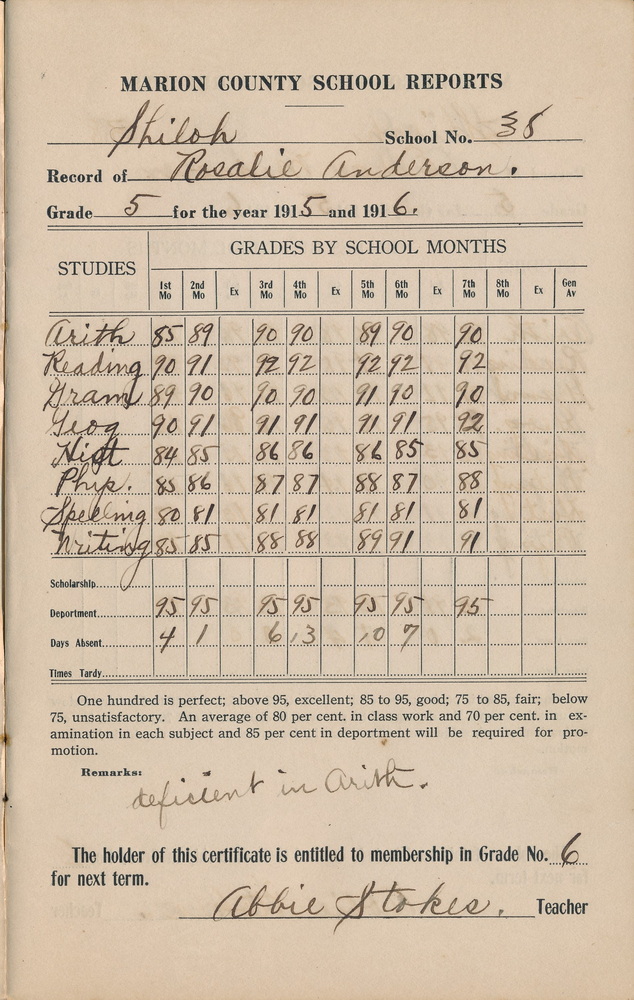 MARION COUNTY SCHOOL REPORTS
Shiloh School No. 38
Record of Rosalie Anderson.
Grade 5 for the year 1915 and 1916.
STUDIES GRADES BY SCHOOL MONTHS
1st Mo 2nd Mo Ex 3rd Mo 4th Mo Ex 5th Mo 6th Mo Ex 7th Mo 8th Mo Ex Gen Av
Arith 85 89 90 90 89 90 90
Reading 90 91 92 92 92 92 92
Gram 89 90 90 90 91 90 90
Geog 90 91 91 91 91 91 92
Hist 84 85 86 86 86 85 85
Phys. 85 86 87 87 88 87 88
Spelling 80 81 81 81 81 81 81
Writing 85 85 88 88 89 91 91
Scholarship
Department 95 95 95 95 95 95 95
Days Absent 4 1 6 13 10 7
Times Tardy
One hundred is perfect; above 95, excellent; 85 to 95, good; 75 to 85, fair; below
75, unsatisfactory. An average of 80 per cent. in class work and 70 per cent. in ex-
amination in each subject and 85 per cent in deportment will be required for pro-
motion.
Remarks:
deficient in Arith.
The holder of this certificate is entitled to membership in Grade No. 6
for next term.
Abbie Stokes. Teacher